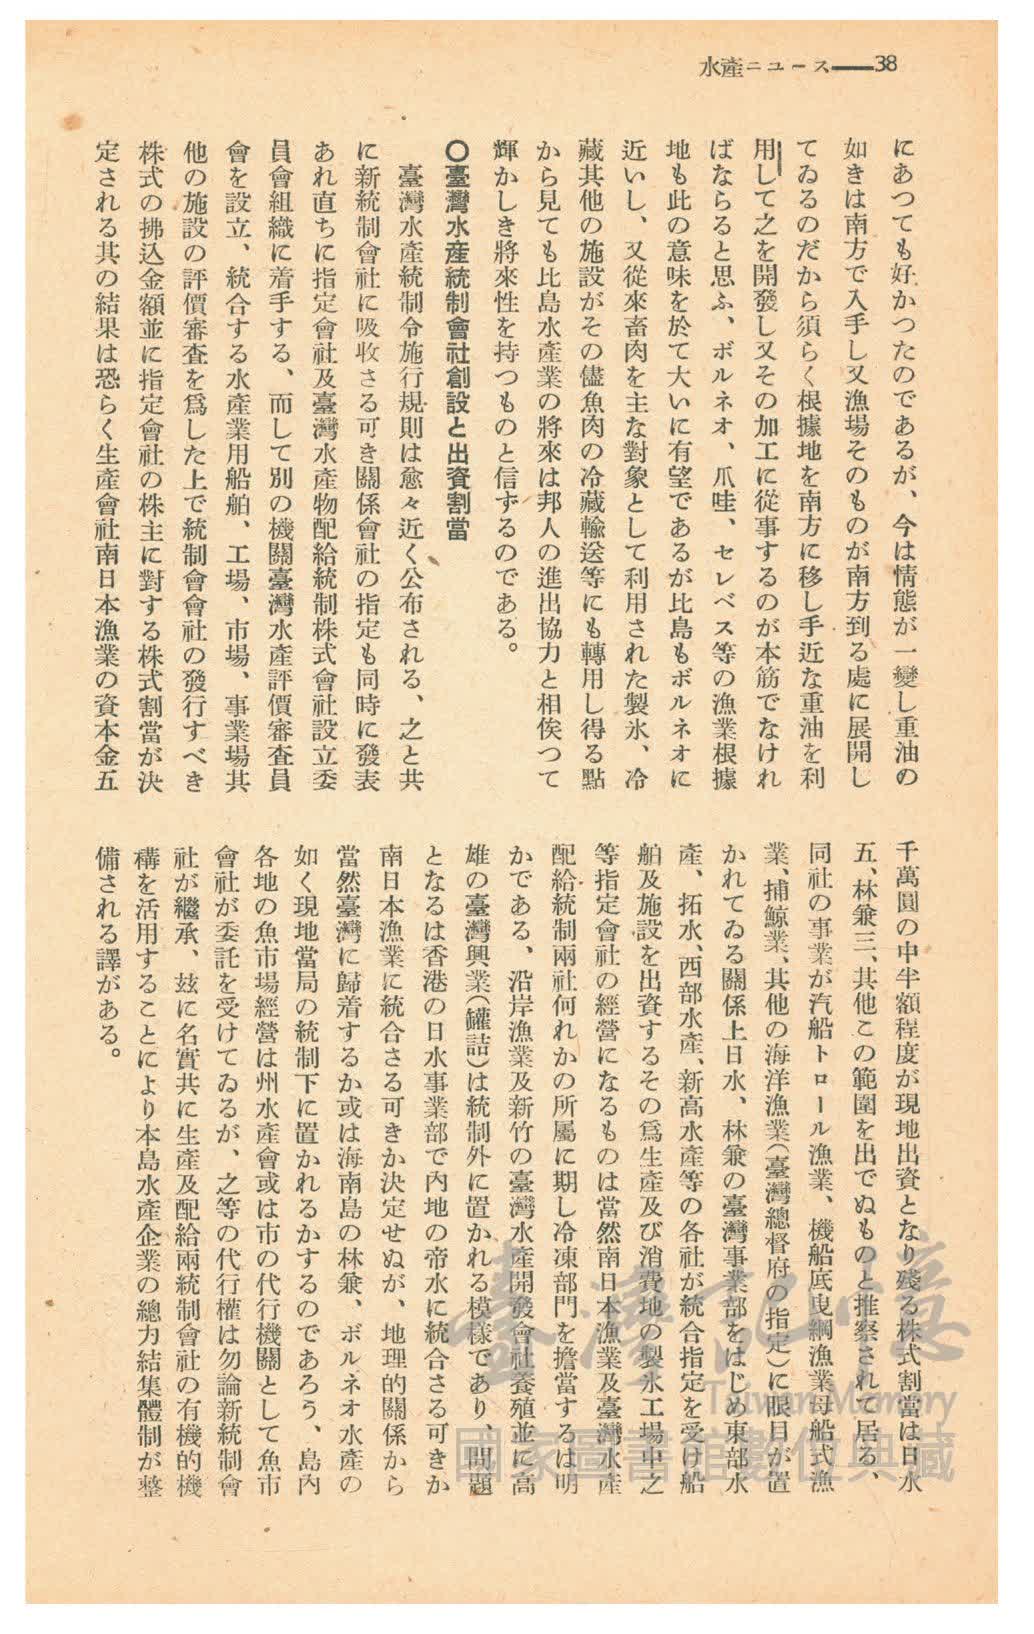 水產ニユース——38
にあつても好かつたのであるが、今は情態が一變し重油の
如きは南方で入手し又漁場そのものが南方到る處に展開し
てゐるのだから須らく根據地を南方に移し手近な重油を利
用して之を開發し又その加工に從事するのが本筋でなけれ
ばならると思ふ、ボルネオ、爪哇、セレベス等の漁業根據
地も此の意味を於て大いに有望であるが比島もボルネオに
近いし、又從來畜肉を主な對象として利用された製氷、冷
藏其他の施設がその儘魚肉の冷藏輸送等にも轉用し得る點
から見ても比島水產業の將來は邦人の進出協力と相俟つて
輝かしき將來性を持つものと信ずるのである。
〇臺灣水産統制會社創設と出資割當
臺灣水產統制令施行規則は愈々近く公布される、之と共
に新統制會社に吸收さる可き關係會社の指定も同時に發表
あれ直ちに指定會社及臺灣水產物配給統制株式會社設立委
員會組織に着手する、而して別の機關臺灣水產評價審査員
會を設立、統合する水產業用船舶、工場、市場、事業場其
他の施設の評價審査を爲した上で統制會會社の發行すべき
株式の拂込金額並に指定會社の株主に對する株式割當が決
定される其の結果は恐らく生產會社南日本漁業の資本金五
千萬圓の中半額程度が現地出資となり殘る株式割當は日水
五、林兼三、其他この範圍を出でぬものと推察されて居る、
同社の事業が汽船トロール漁業、機船底曳綱漁業母船式漁
業、捕鯨業、其他の海洋漁業(臺灣總督府の指定)に眼目が置
かれてゐる關係上日水、林兼の臺灣事業部をはじめ東部水
產、拓水、西部水產、新高水產等の各社が統合指定を受け船
舶及施設を出資するその爲生產及び消費地の製氷工場中之
等指定會社の經營になるものは當然南日本漁業及臺灣水產
配給統制兩社何れかの所屬に期し冷凍部門を擔當するは明
かである、沿岸漁業及新竹の臺灣水產開發會社養殖並に高
雄の臺灣興業(罐詰)は統制外に置かれる模樣であり、問題
となるは香港の日水事業部で內地の帝水に統合さる可きか
南日本漁業に統合さる可きか決定せぬが、地理的關係から
當然臺灣に歸着するか或は海南島の林兼、ボルネオ水產の
如く現地當局の統制下に置かれるかするのであろう、島內
各地の魚市場經營は州水產會或は市の代行機關として魚市
會社が委託を受けてゐるが、之等の代行權は勿論新統制會
社が繼承、玆に名實共に生產及配給兩統制會社の有機的機
構を活用することにより本島水產企業の總力結集體制が整
備される譯がある。
臺灣記憶
Taiwan Memory
國家圖書館數位典藏